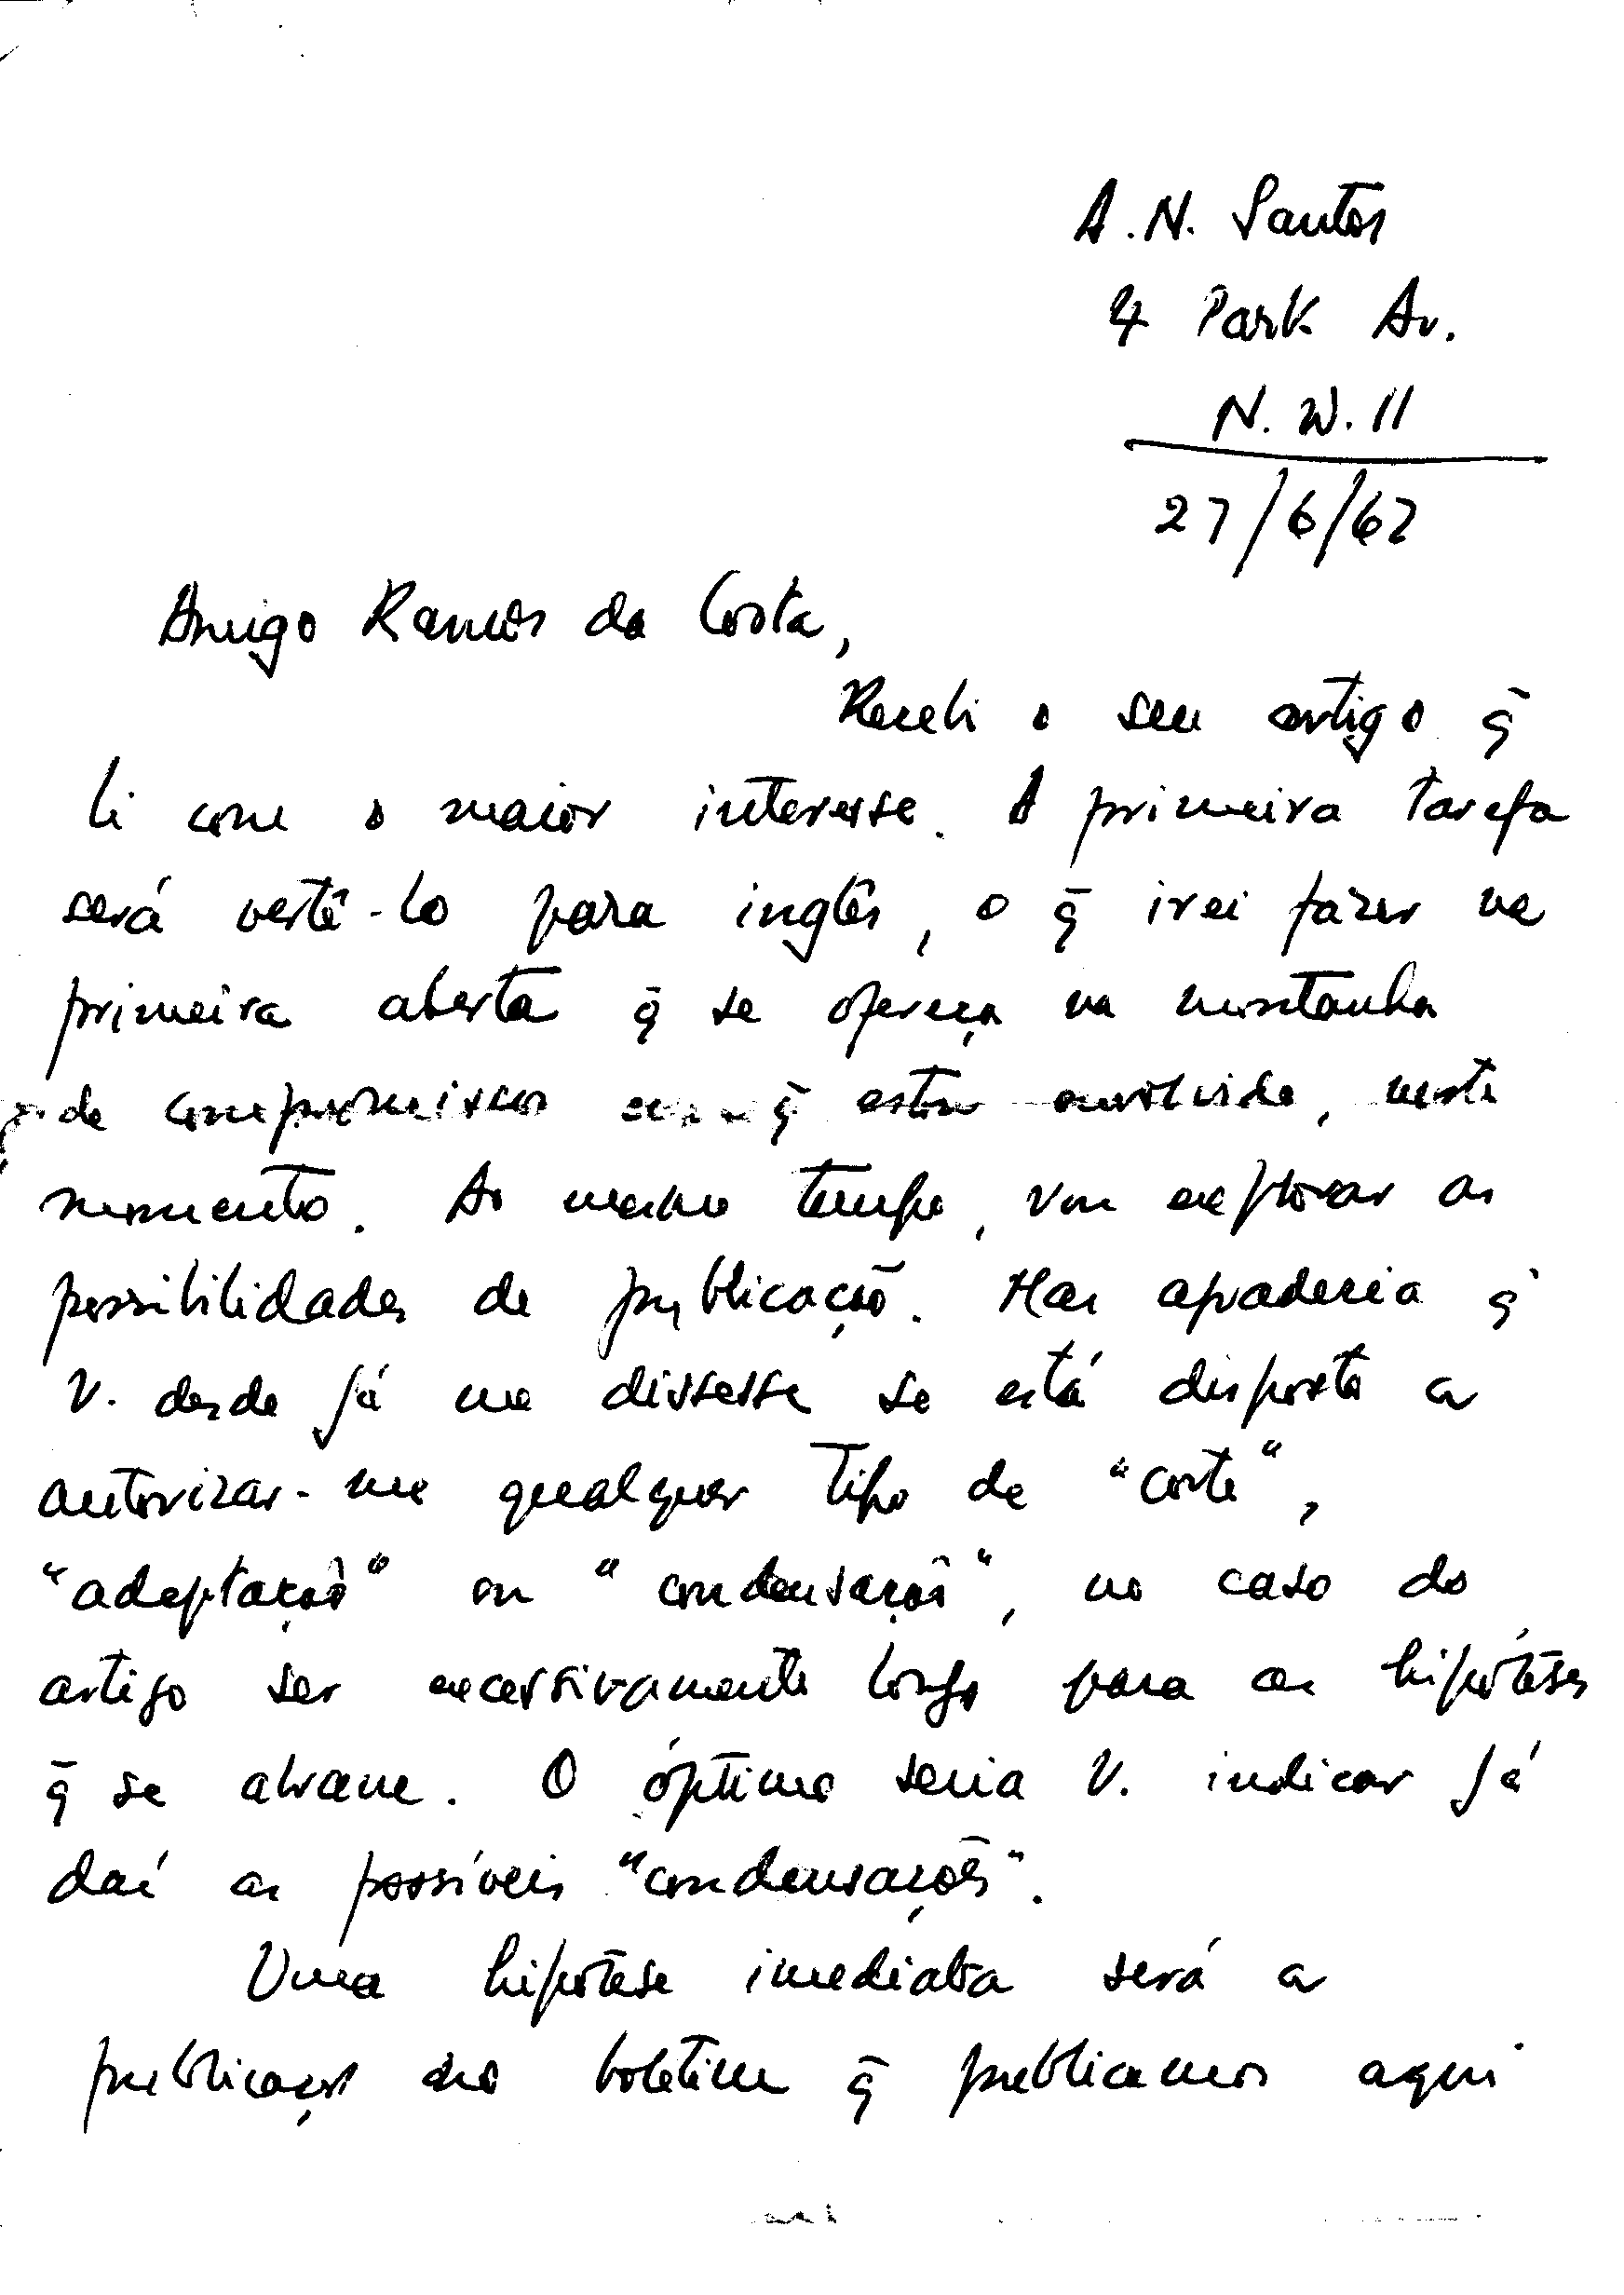 A. N. Santos
4 Park Av.
N. W. 11
27/6/62
Amigo Ramos da Costa,
Recebi o seu artigo q̄
li com o maior interesse. A primeira tarefa
será vertê-lo para inglês, o q̄ irei fazer na
primeira aberta q̄ se ofereça na montanha
de compromissos em q̄ estou envolvido, neste
momento. Ao mesmo tempo, vou explorar as
possibilidades de publicação. Mas agradecia q̄
V. desde já me dissesse se está disposto a
autorizar-me qualquer tipo de "corte",
"adaptação" ou "condensação", no caso do
artigo ser excessivamente longo para as hipóteses
q̄ se abrem. O óptimo seria V. indicar já
daí as possíveis "condensações".
Uma hipótese imediata será a
publicação no boletim q̄ publicamos aqui